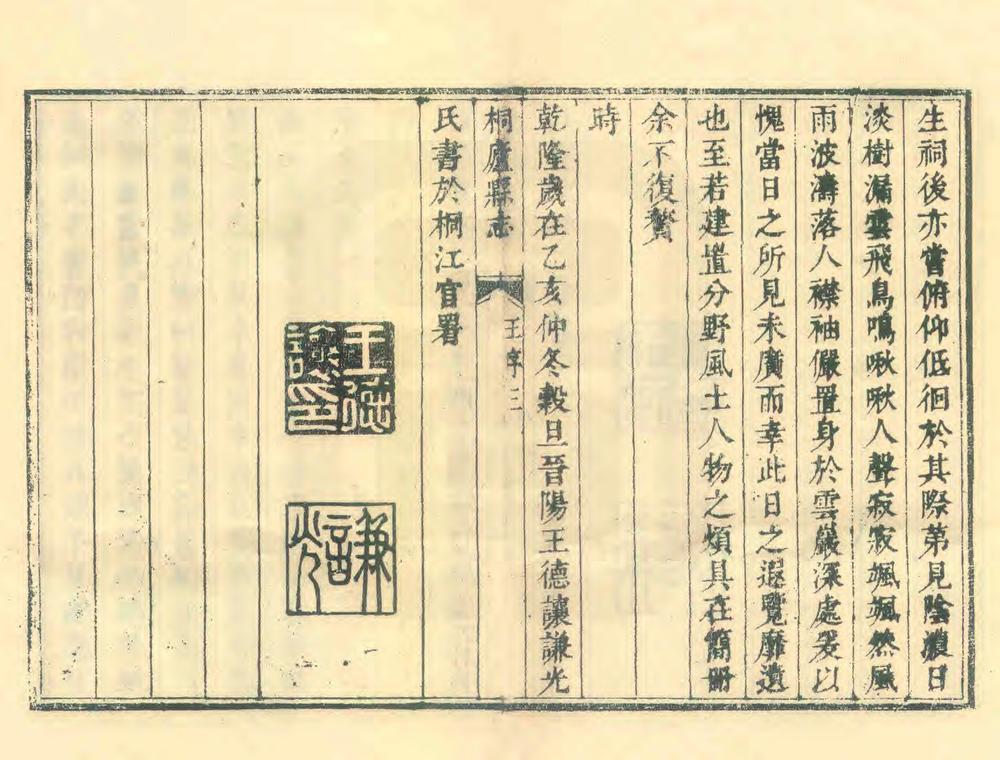 生祠後亦嘗俯仰低徊於其際第見陰濃日
淡樹漏雲飛鳥鳴啾啾人聲寂寂颯颯然風
雨波濤落人襟袖儼置身於雲巖深處爰以
愧當日之所見未廣而幸此日之遐覽靡遺
也至若建置分野風土人物之煩具在簡冊
余不復贅
時
乾隆歲在乙亥仲冬穀旦晉陽王德讓謙光
桐廬縣志
王序
三
氏書於桐江官署
王德
讓印
謙
光